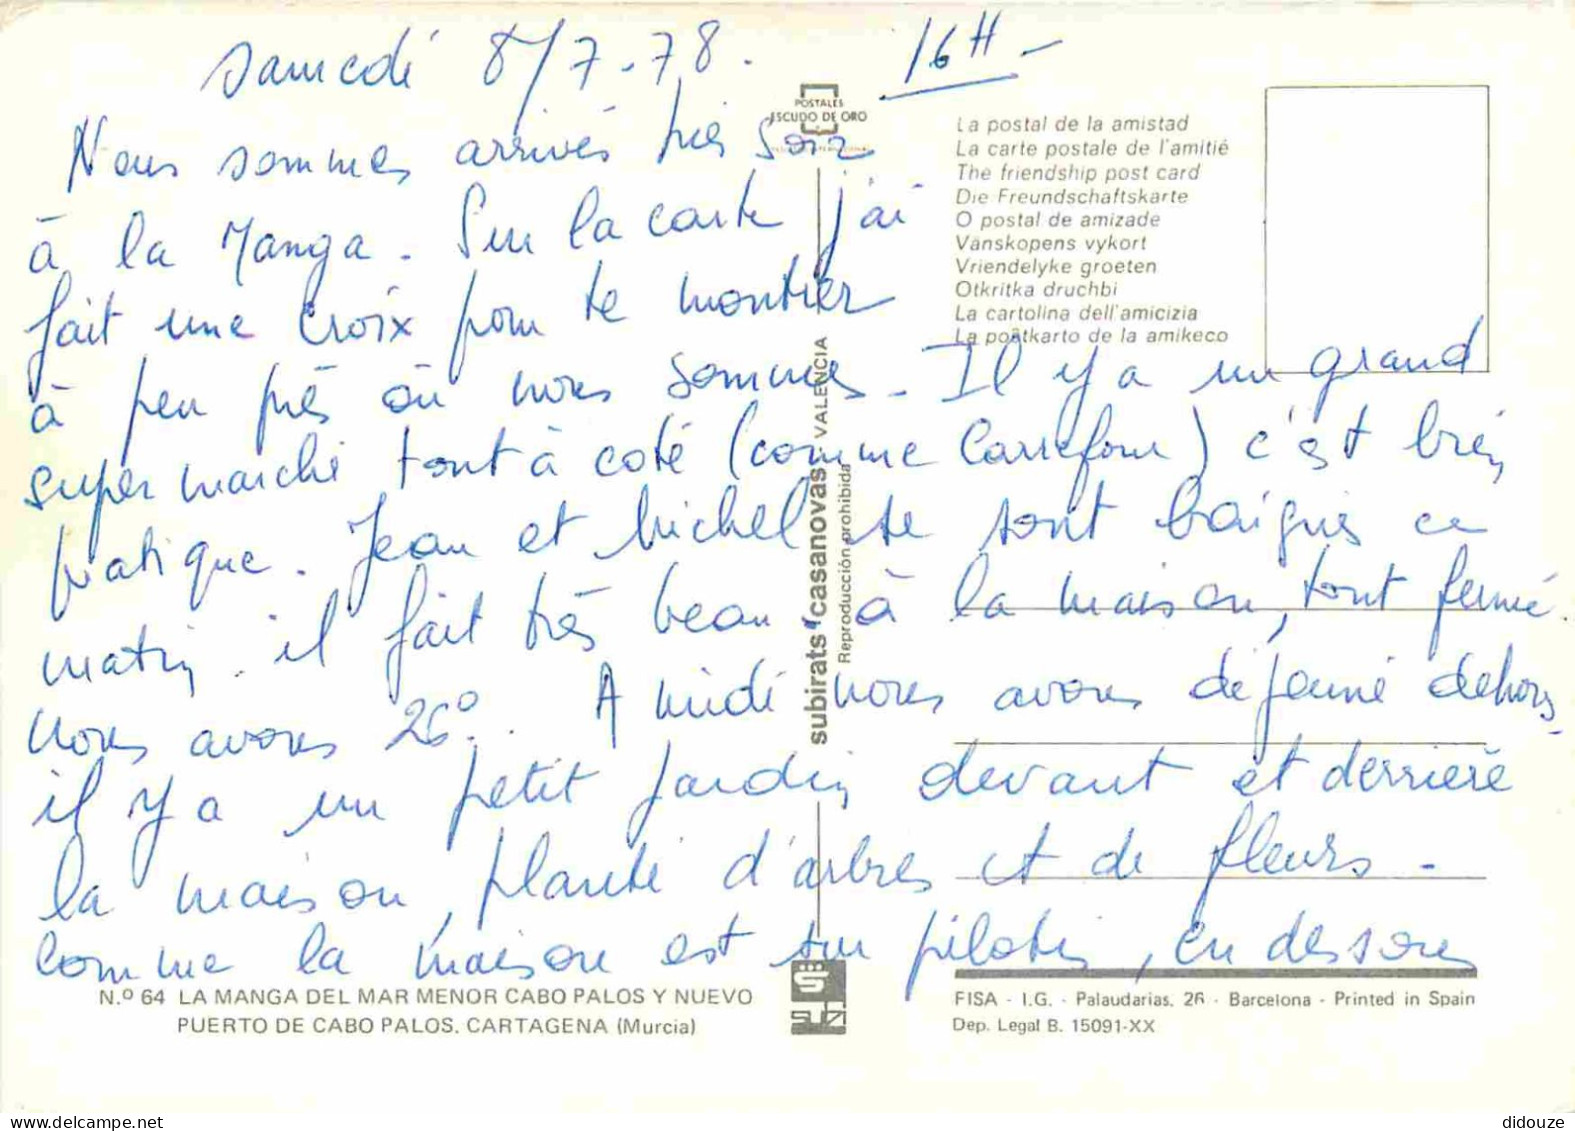 Samedi 8/7-78. 16H -
Nous sommes arrivés hier soir
à la Manga. Sur la carte j'ai
fait une croix pour te montrer
à peu près où nous sommes - Il y a un grand
super marché tout à coté (comme Carrefour) c'est bien
pratique. Jean et Michel se sont baignés ce
matin. il fait très beau à la maison, tout fermé
nous avons 26°.. A midi nous avons déjeuné dehors -
il y a un petit jardin devant et derrière
la maison, planté d'arbres et de fleurs -
comme la maison est sur pilotis, en dessous
POSTALES
ESCUDO DE ORO
La postal de la amistad
La carte postale de l'amitié
The friendship post card
Die Freundschaftskarte
O postal de amizade
Vänskopens vykort
Vriendelyke groeten
Otkritka druchbi
La cartolina dell'amicizia
La poŝtkarto de la amikeco
subirats casanovas VALENCIA
Reproducción prohibida
N.º 64 LA MANGA DEL MAR MENOR CABO PALOS Y NUEVO
PUERTO DE CABO PALOS. CARTAGENA (Murcia)
FISA - I.G. - Palaudarias, 26 - Barcelona - Printed in Spain
Dep. Legal B. 15091-XX
didouze